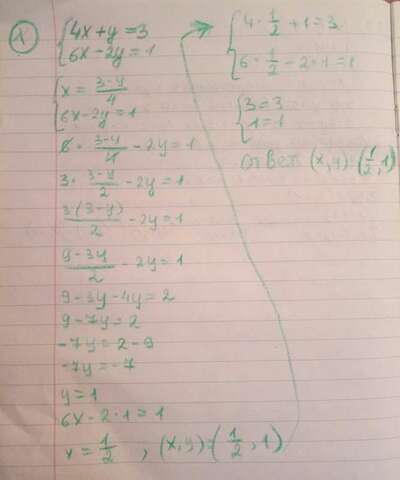 X
{4x+y=3
6x-2y=1
{x=\frac{3-y}{4}
6x-2y=1
6·\frac{3-y}{4}-2y=1
3·\frac{3-y}{2}-2y=1
\frac{3·(3-y)}{2}-2y=1
\frac{9-3y}{2}-2y=1
9-3y-4y=2
9-7y=2
-7y=2-9
-7y=-7
y=1
6x-2·1=1
x=\frac{1}{2}, (x,y)=(\frac{1}{2},1)
{4·\frac{1}{2}+1=3
6·\frac{1}{2}-2·1=1
{3=3
1=1
ответ (x,y)=(\frac{1}{2},1)